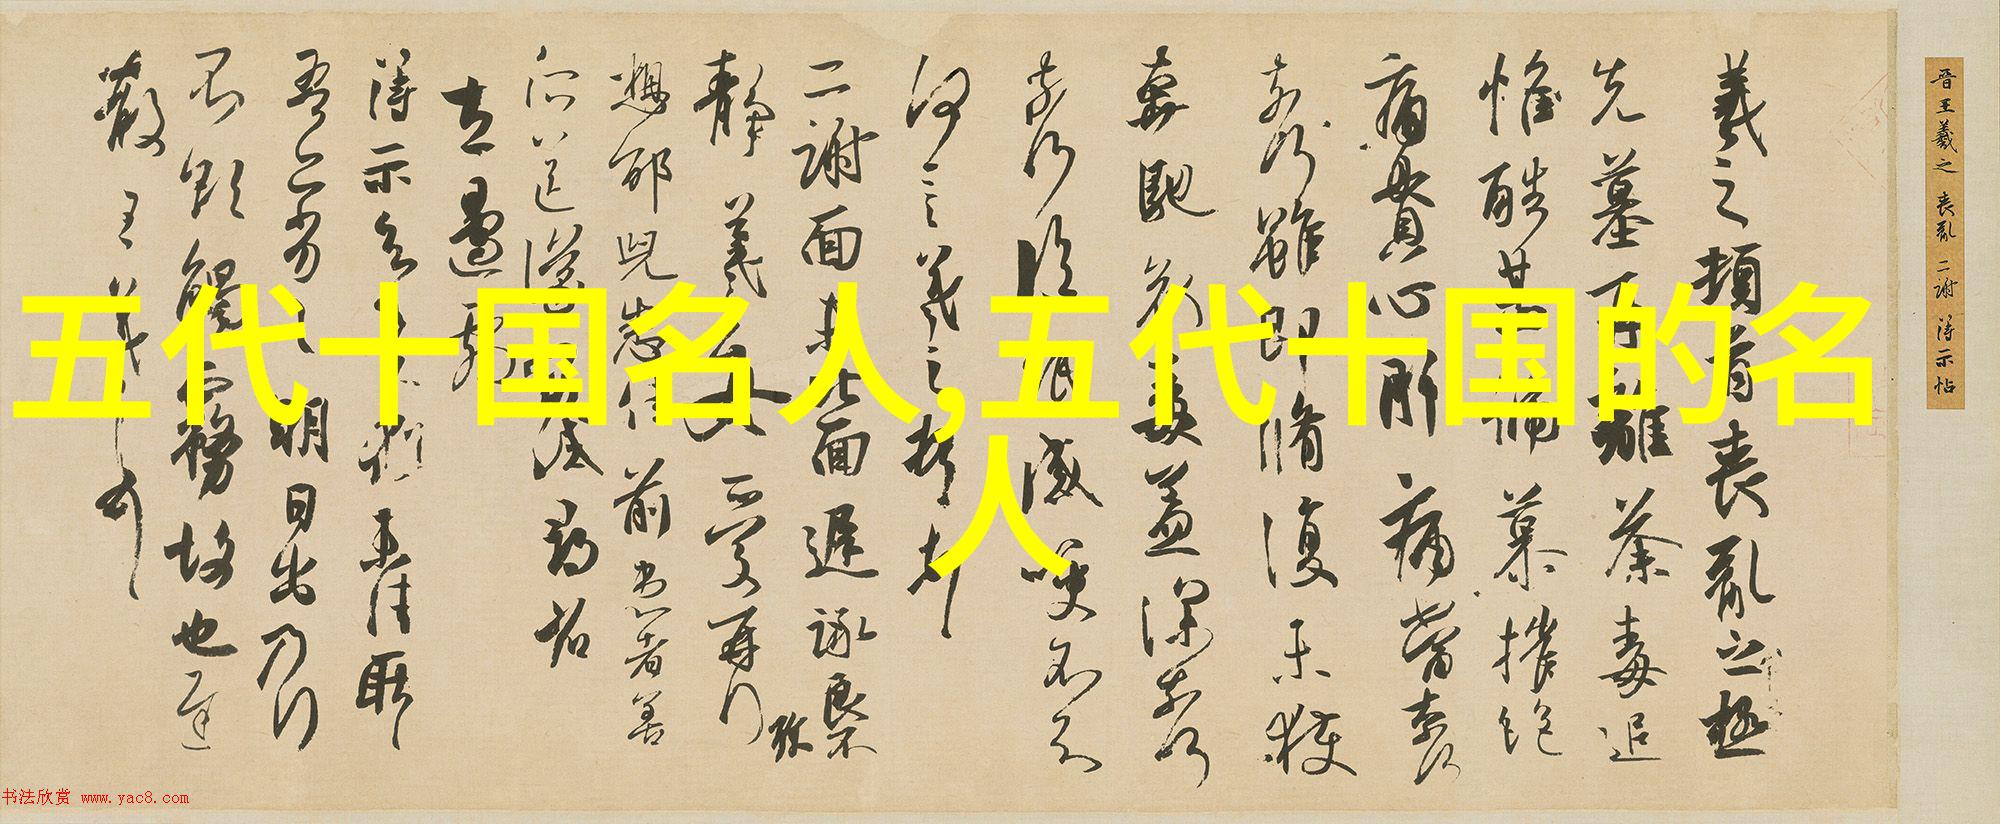 五代十国名人,五代十国的名
人
晋王羲之 喪亂 二謝 得示帖
羲之頓首喪亂之極
先墓再離荼毒追
惟酷甚號慕摧絶
痛貫心肝痛當奈何
奈何雖即脩復未獲
奔馳哀毒益深奈何
奈何臨紙感哽不知
何言羲之頓首
二謝面未比面遲詠良不
靜羲之女愛再
想邵兒悉佳前患者善
左邊劇
得示知足下猶未佳耿
吾亦劣明日出乃行
不欲觸霧故也遲
散王羲之
书法欣赏 www.yac8.com